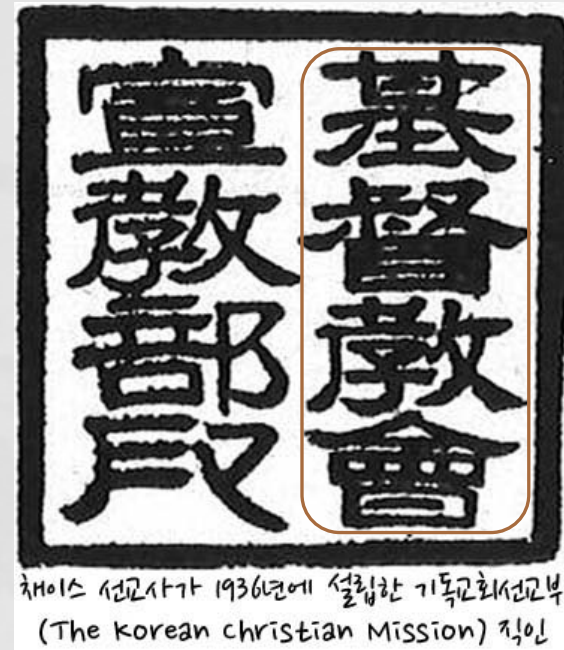 基督教會
宣教部印
채이스 선교사가 1936년에 설립한 기독교회선교부
(The Korean Christian Mission) 직인